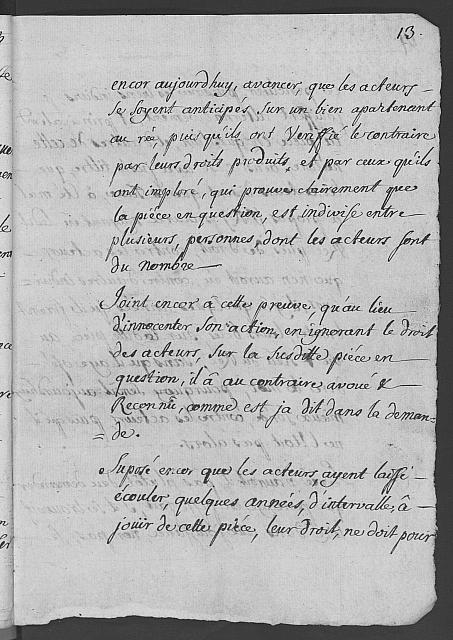 13.
encor aujourdhuy, avancer, que les acteurs
se soyent anticipés, sur un bien apartenant
au réa, puis qu'ils ont Veriffié le contraire
par leurs droits produits, et par ceux qu'ils
ont imploré, qui prouve clairement que
la piéce en question, est indivise entre
plusieurs, personnes, dont les acteurs sont
du nombre
Joint encor à cette preuve, qu'au lieu
d'innocenter son action, en ignorant le droit
des acteurs, sur la susditte piéce en
question, il â au contraire, avoué &
Reconnü, comme est ja dit dans la deman=
=de.
Suposé encor que les acteurs ayent laissé
écouler, quelques années, d'intervalle, â
jouïr de cette piéce, leur droit, ne doit pour